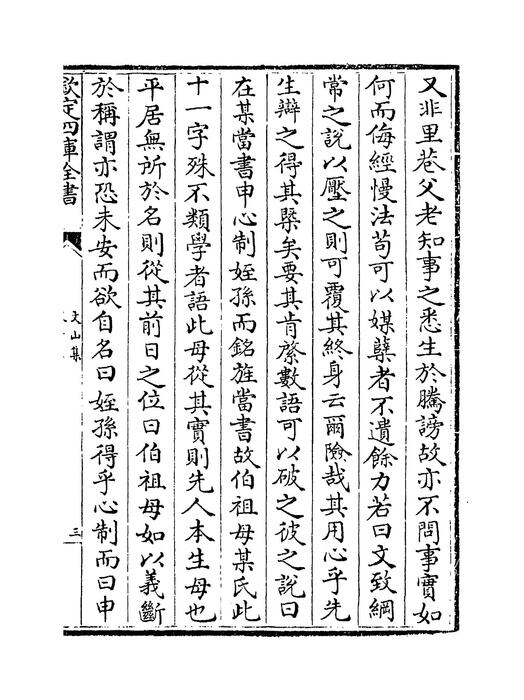 又非里巷父老知事之悉生於騰謗故亦不問事實如
何而侮經慢法苟可以媒孽者不遺餘力若曰文致綱
常之說以壓之則可覆其終身云爾險哉其用心乎先
生辯之得其槩矣要其肯綮數語可以破之彼之說曰
在某當書申心制姪孫而銘旌當書故伯祖母某氏此
十一字殊不類學者語此母從其實則先人本生母也
平居無所於名則從其前日之位曰伯祖母如以義斷
於稱謂亦恐未安而欲自名曰姪孫得乎心制而曰申
欽定四庫全書
文山集
三